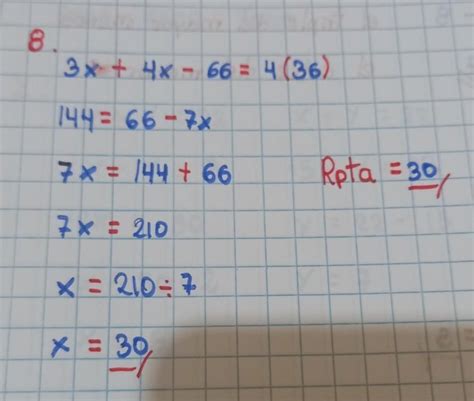 8.
3x + 4x - 66 = 4(36)
144 = 66 - 7x
7x = 144 + 66
Rpta = 30
7x = 210
x = 210 ÷ 7
x = 30